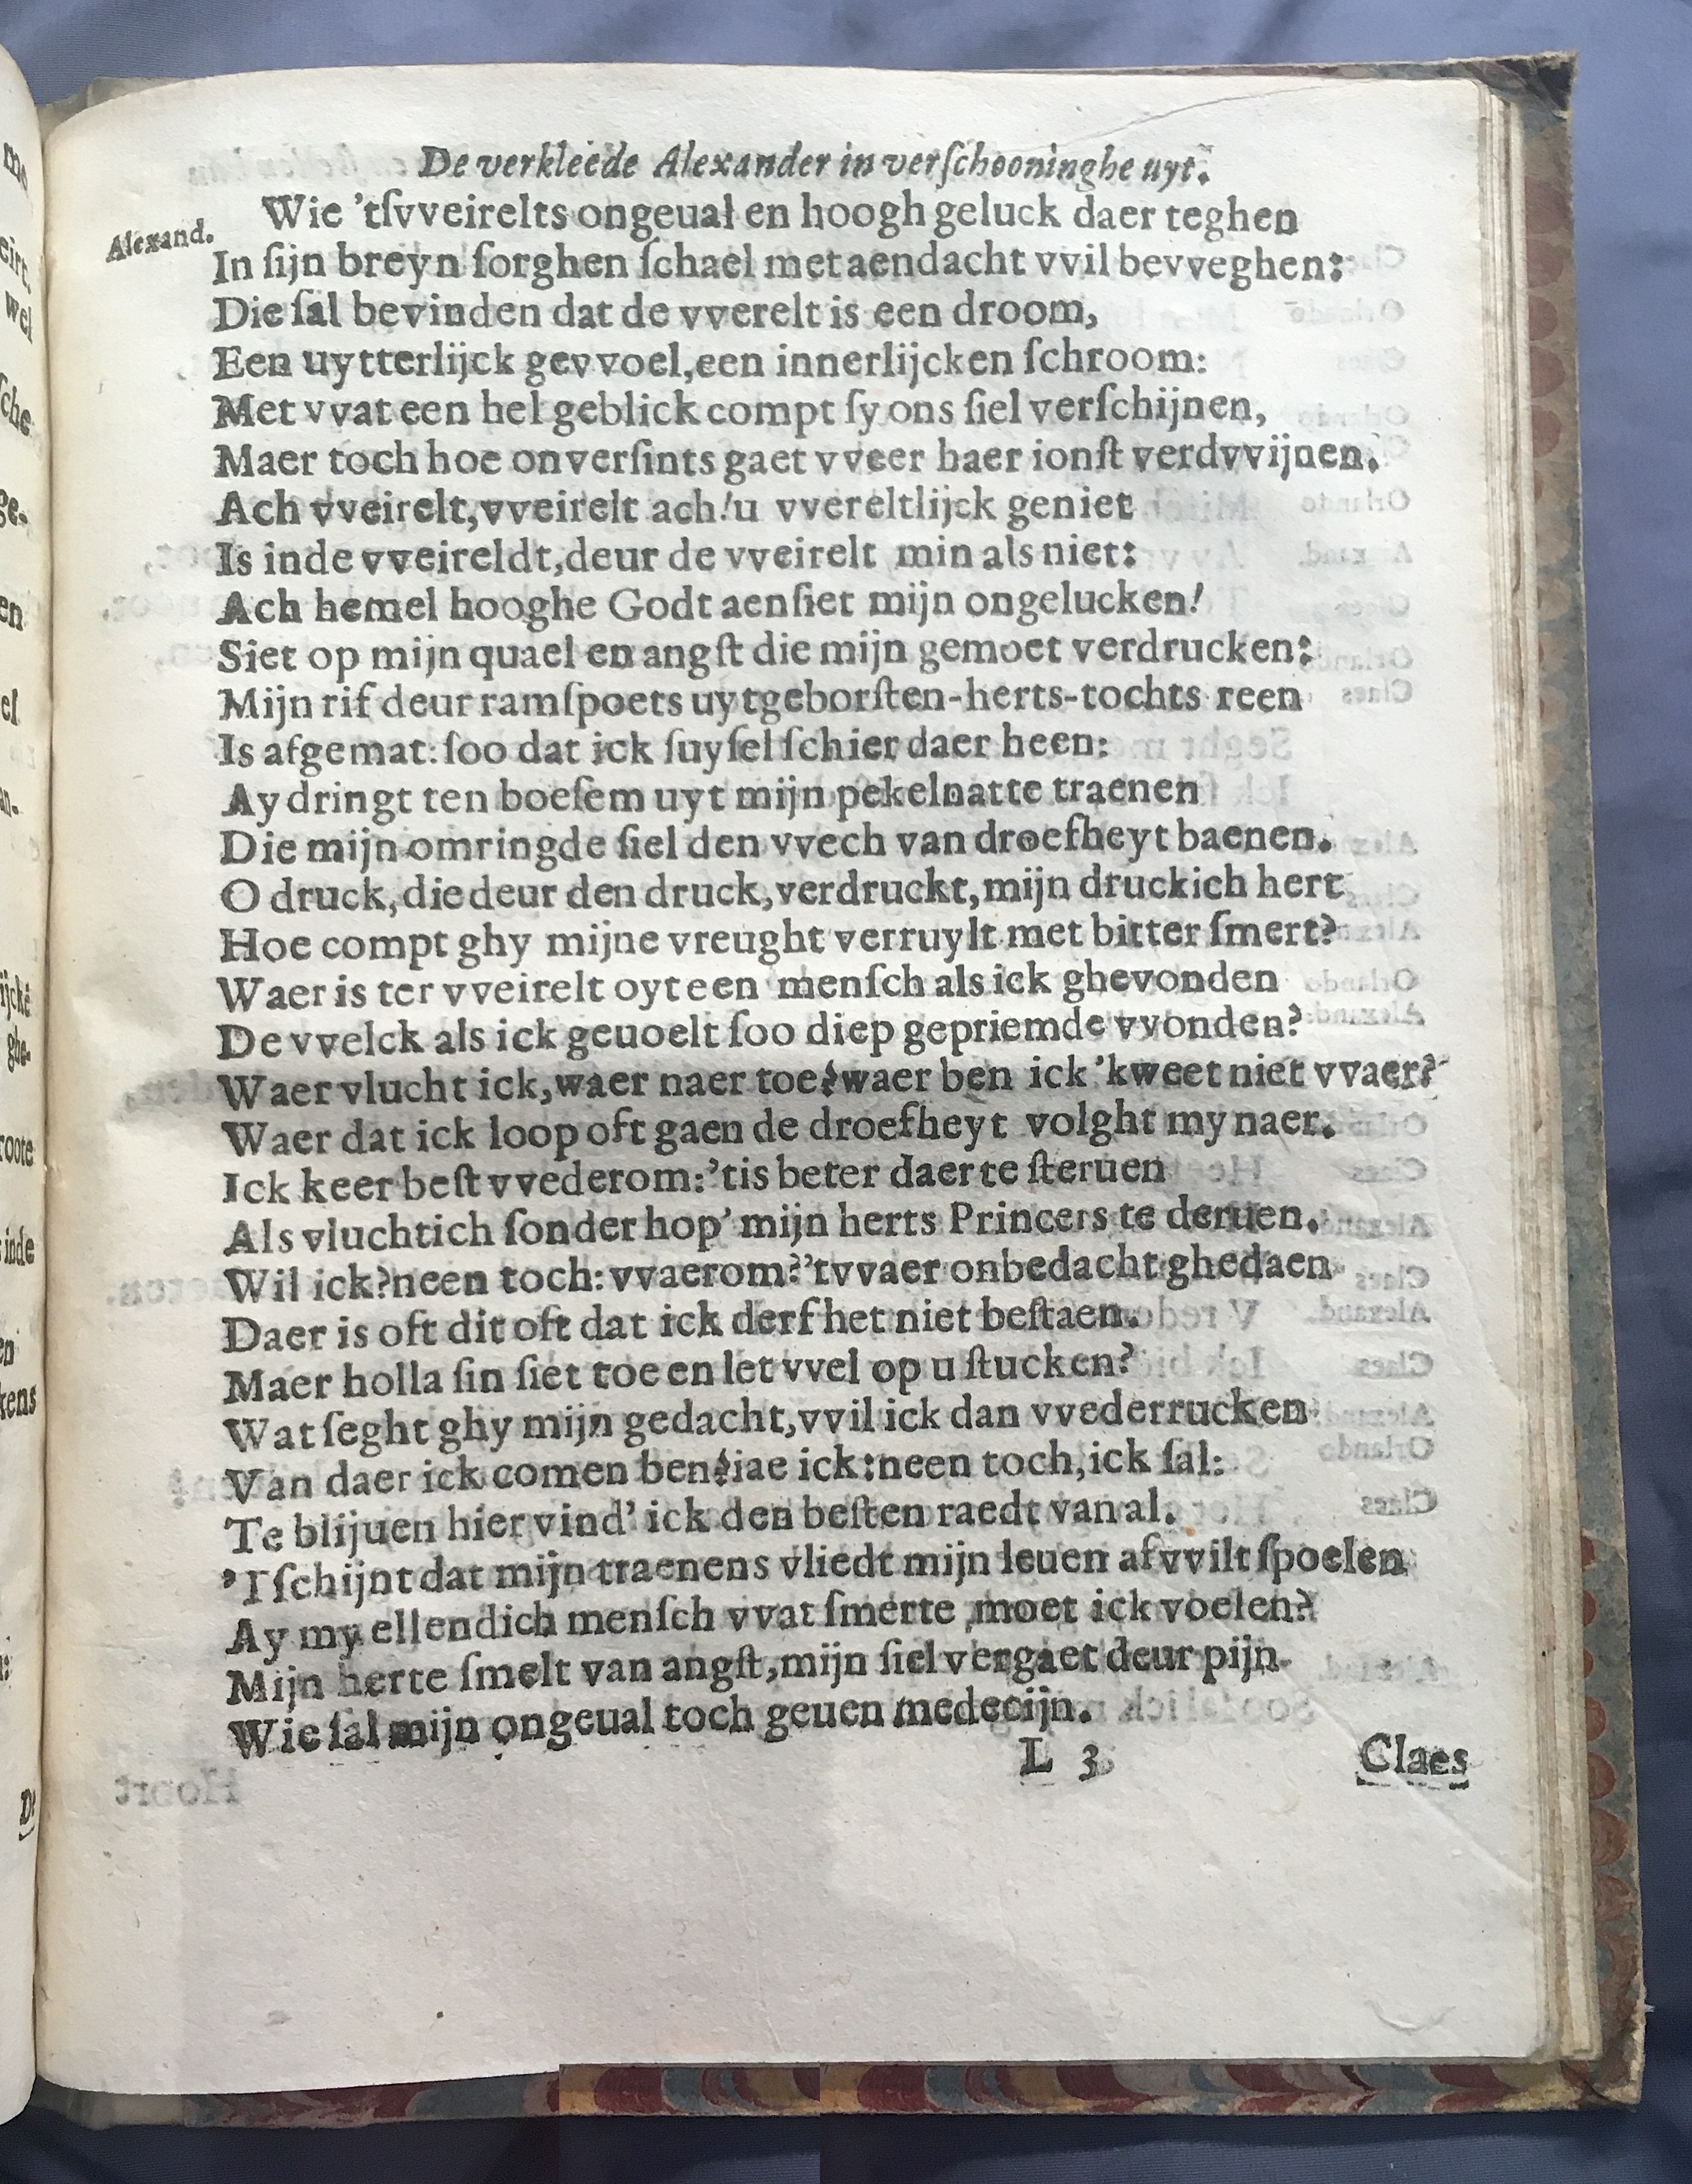 De verkleede Alexander in verſchooninghe uyt.
Alexand. Wie 'tſvveirelts ongeual en hoogh geluck daer teghen
In ſijn breyn ſorghen ſchael met aendacht vvil bevveghen:
Die ſal bevinden dat de vverelt is een droom,
Een uytterlijck gevvoel, een innerlijcken ſchroom:
Met vvat een hel geblick compt ſy ons ſiel verſchijnen,
Maer toch hoe onverſints gaet vveer haer ionſt verdvvijnen.
Ach vveirelt, vveirelt ach! u vvereltlijck geniet
Is inde vveireldt, deur de vveirelt min als niet:
Ach hemel hooghe Godt aenſiet mijn ongelucken!
Siet op mijn quael en angſt die mijn gemoet verdrucken:
Mijn rif deur ramſpoets uytgeborſten-herts-tochts reen
Is afgemat: ſoo dat ick ſuyſel ſchier daer heen:
Ay dringt ten boeſem uyt mijn pekelnatte traenen
Die mijn omringde ſiel den vvech van droefheyt baenen.
O druck, die deur den druck, verdruckt, mijn druckich hert
Hoe compt ghy mijne vreught verruylt met bitter ſmert?
Waer is ter vveirelt oyt een menſch als ick ghevonden
De vvelck als ick geuoelt ſoo diep gepriemde vvonden?
Waer vlucht ick, waer naer toe? waer ben ick 'k weet niet vvaer?
Waer dat ick loop oft gaen de droefheyt volght my naer.
Ick keer beſt vvederom: 'tis beter daer te ſteruen
Als vluchtich ſonder hop' mijn herts Princers te deruen.
Wil ick? neen toch: vvaerom? 'tvvaer onbedacht ghedaen
Daer is oft dit oft dat ick derf het niet beſtaen.
Maer holla ſin ſiet toe en let vvel op u ſtucken?
Wat ſeght ghy mijn gedacht, vvil ick dan vvederrucken
Van daer ick comen ben? iae ick: neen toch, ick ſal:
Te blijuen hier vind' ick den beſten raedt van al.
'Tſchijnt dat mijn traenens vliedt mijn leuen af vvilt ſpoelen
Ay my ellendich menſch vvat ſmerte moet ick voelen?
Mijn herte ſmelt van angſt, mijn ſiel vergaet deur pijn
Wie ſal mijn ongeual toch geuen medecijn.
L 3 Claes